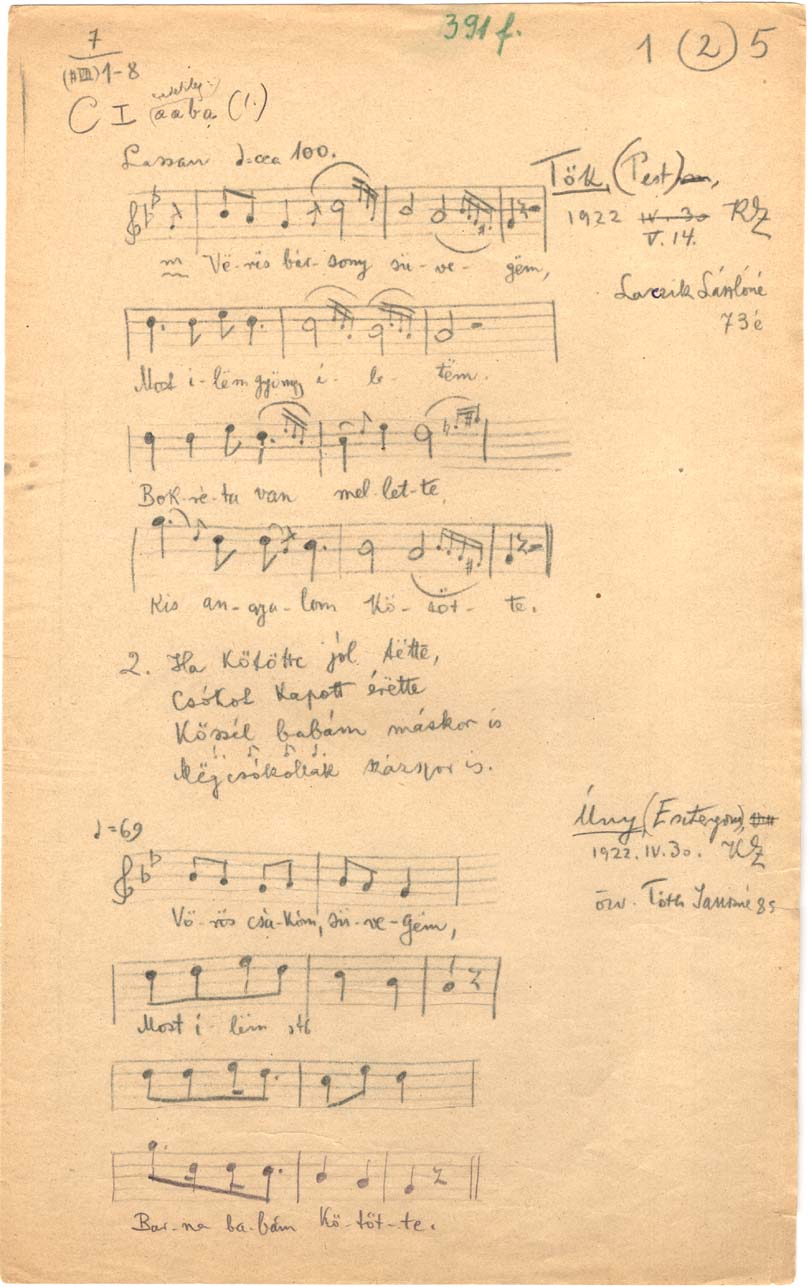 391 f.
1 (2) 5
7
1-8
C I aaba (1.)
Lassan ♩=cca 100.
Tök, (Pest),
1922 IV. 30 KZ
V. 14.
Vë-rös bár-sony sü-ve-gëm,
Laczik Lászlóné
73 é
Most i-lëm gyöngy i-le-tëm.
Bok-ré-ta van mel-let-te,
Kis an-gya-lom kö-töt-te.
2. Ha kötötte jól tëtte,
Csókot kapott érëtte
Kössél babám máskor is
Mëgcsókollak százszor is.
♩=69
Úny, (Esztergom),
1922. IV. 30. KZ
özv. Tóth Jánosné 85
Vö-rös csá-kóm, sü-ve-gëm,
Most i-lëm stb
Bar-na ba-bám kö-töt-te.